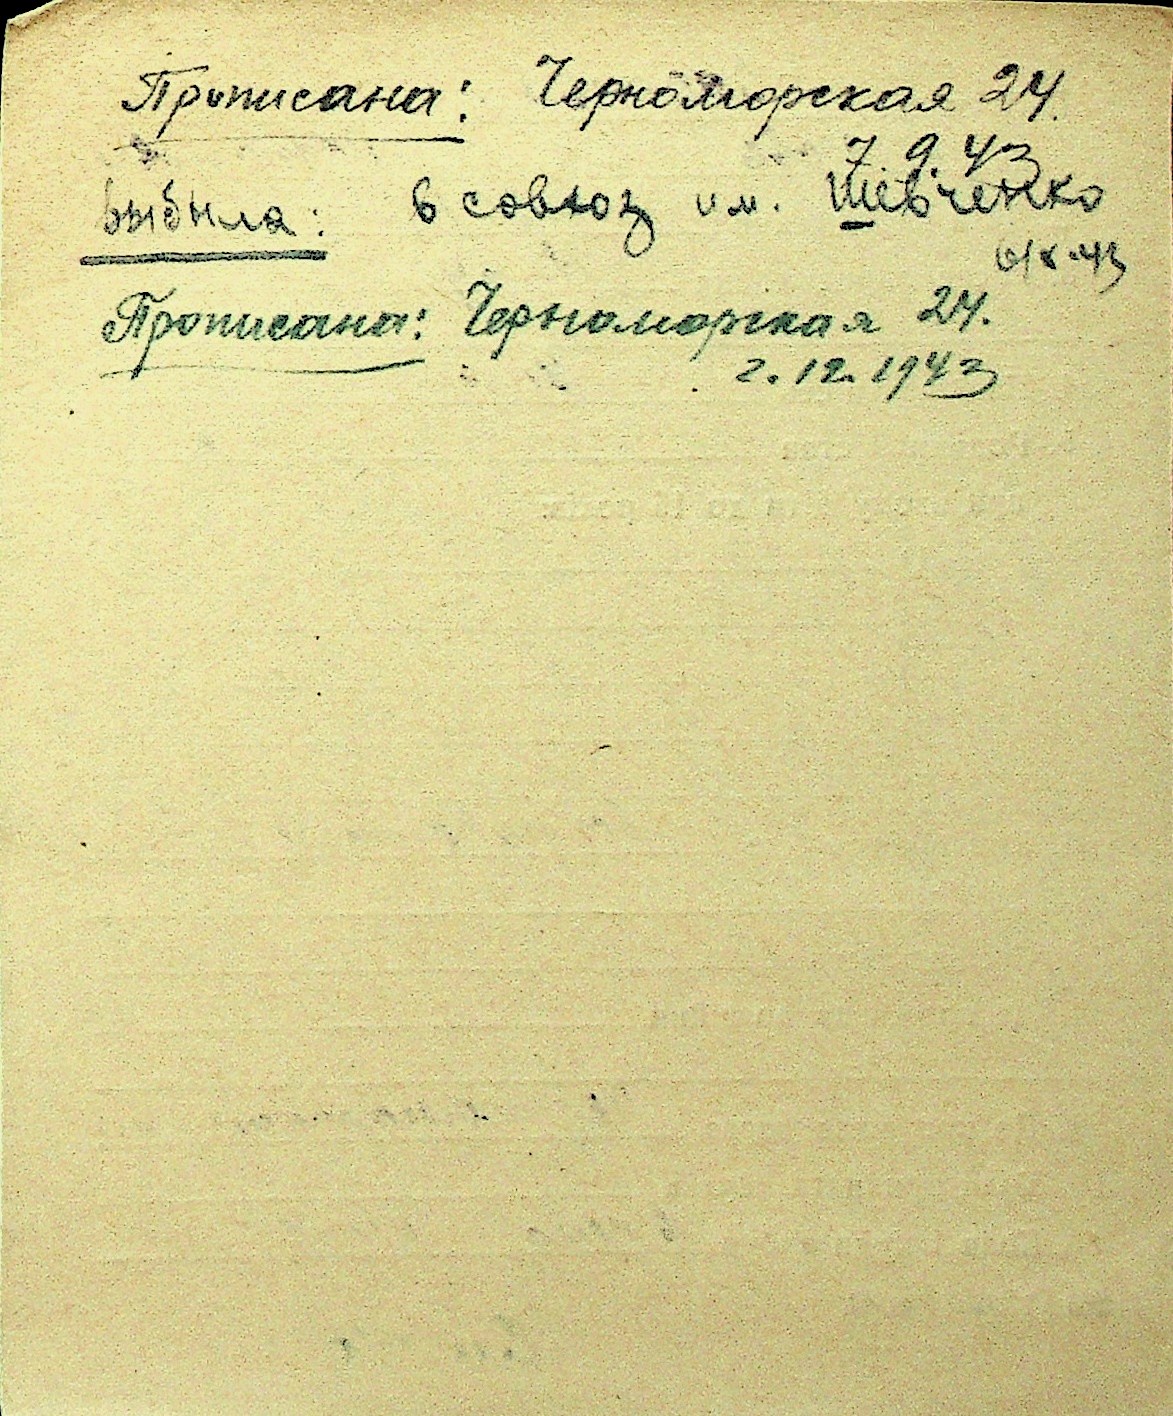 Прописана: Черноморская 24.
7.9.43
выбыла: в совхоз им. Шевченко
Прописана: Черноморская 24.
2.12.1943